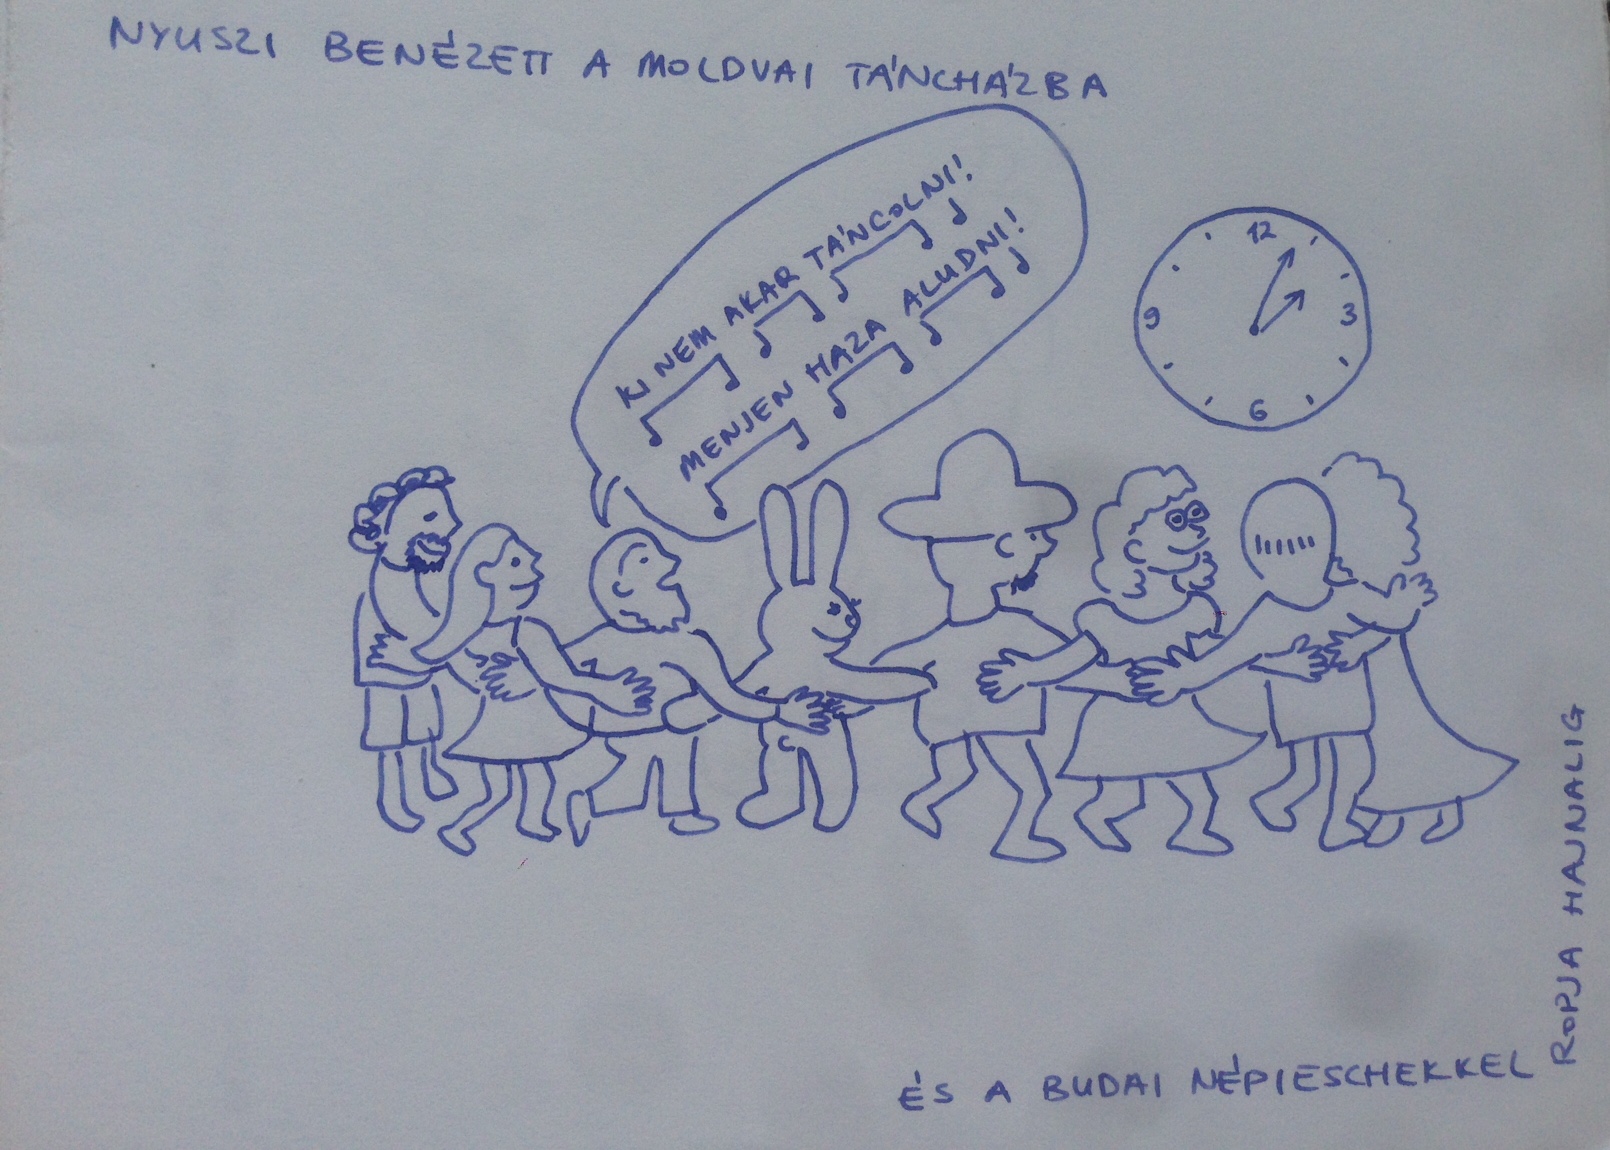 NYUSZI BENÉZETT A MOLDVAI TÁNCHÁZBA
KI NEM AKAR TÁNCOLNI!
MENJEN HAZA ALUDNI!
12
9
3
6
ÉS A BUDAI NÉPIESCHEKKEL
ROPJA HAJNALIG